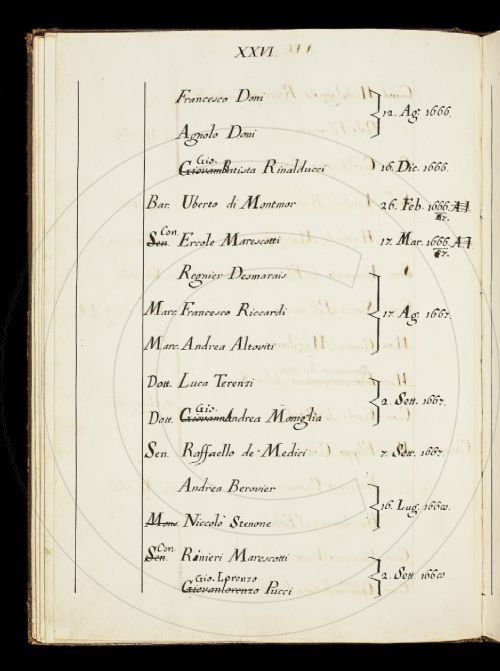 XXVI.
Francesco Doni
12. Ag. 1666.
Agnolo Doni
Gio.
Giovambatista Rinalducci 16. Dic. 1666.
Bar. Uberto di Montmor 26. Feb. 1666.
67.
Con.
Sen. Ercole Marescotti 17. Mar. 1666.
67.
Regnier Desmarais
Marc. Francesco Riccardi 17. Ag. 1667.
Marc. Andrea Altoviti
Dott. Luca Terenzi
2. Sett. 1667.
Gio.
Dott. Giovann Andrea Moniglia
Sen. Raffaello de' Medici 7. Sett. 1667.
Andrea Berovier
16. Lug. 1668.
Mons. Niccolò Stenone
Con.
Sen. Rinieri Marescotti
2. Sett. 1668.
Gio. Lorenzo
Giovanlorenzo Pucci